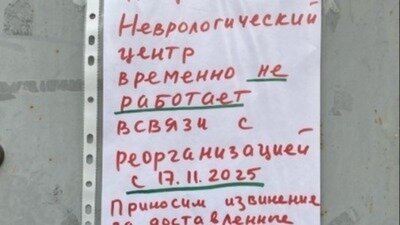 Неврологический
центр
временно не
работает
всвязи с
реорганизацией
с 17.11.2025
Приносим извинение
за доставленные